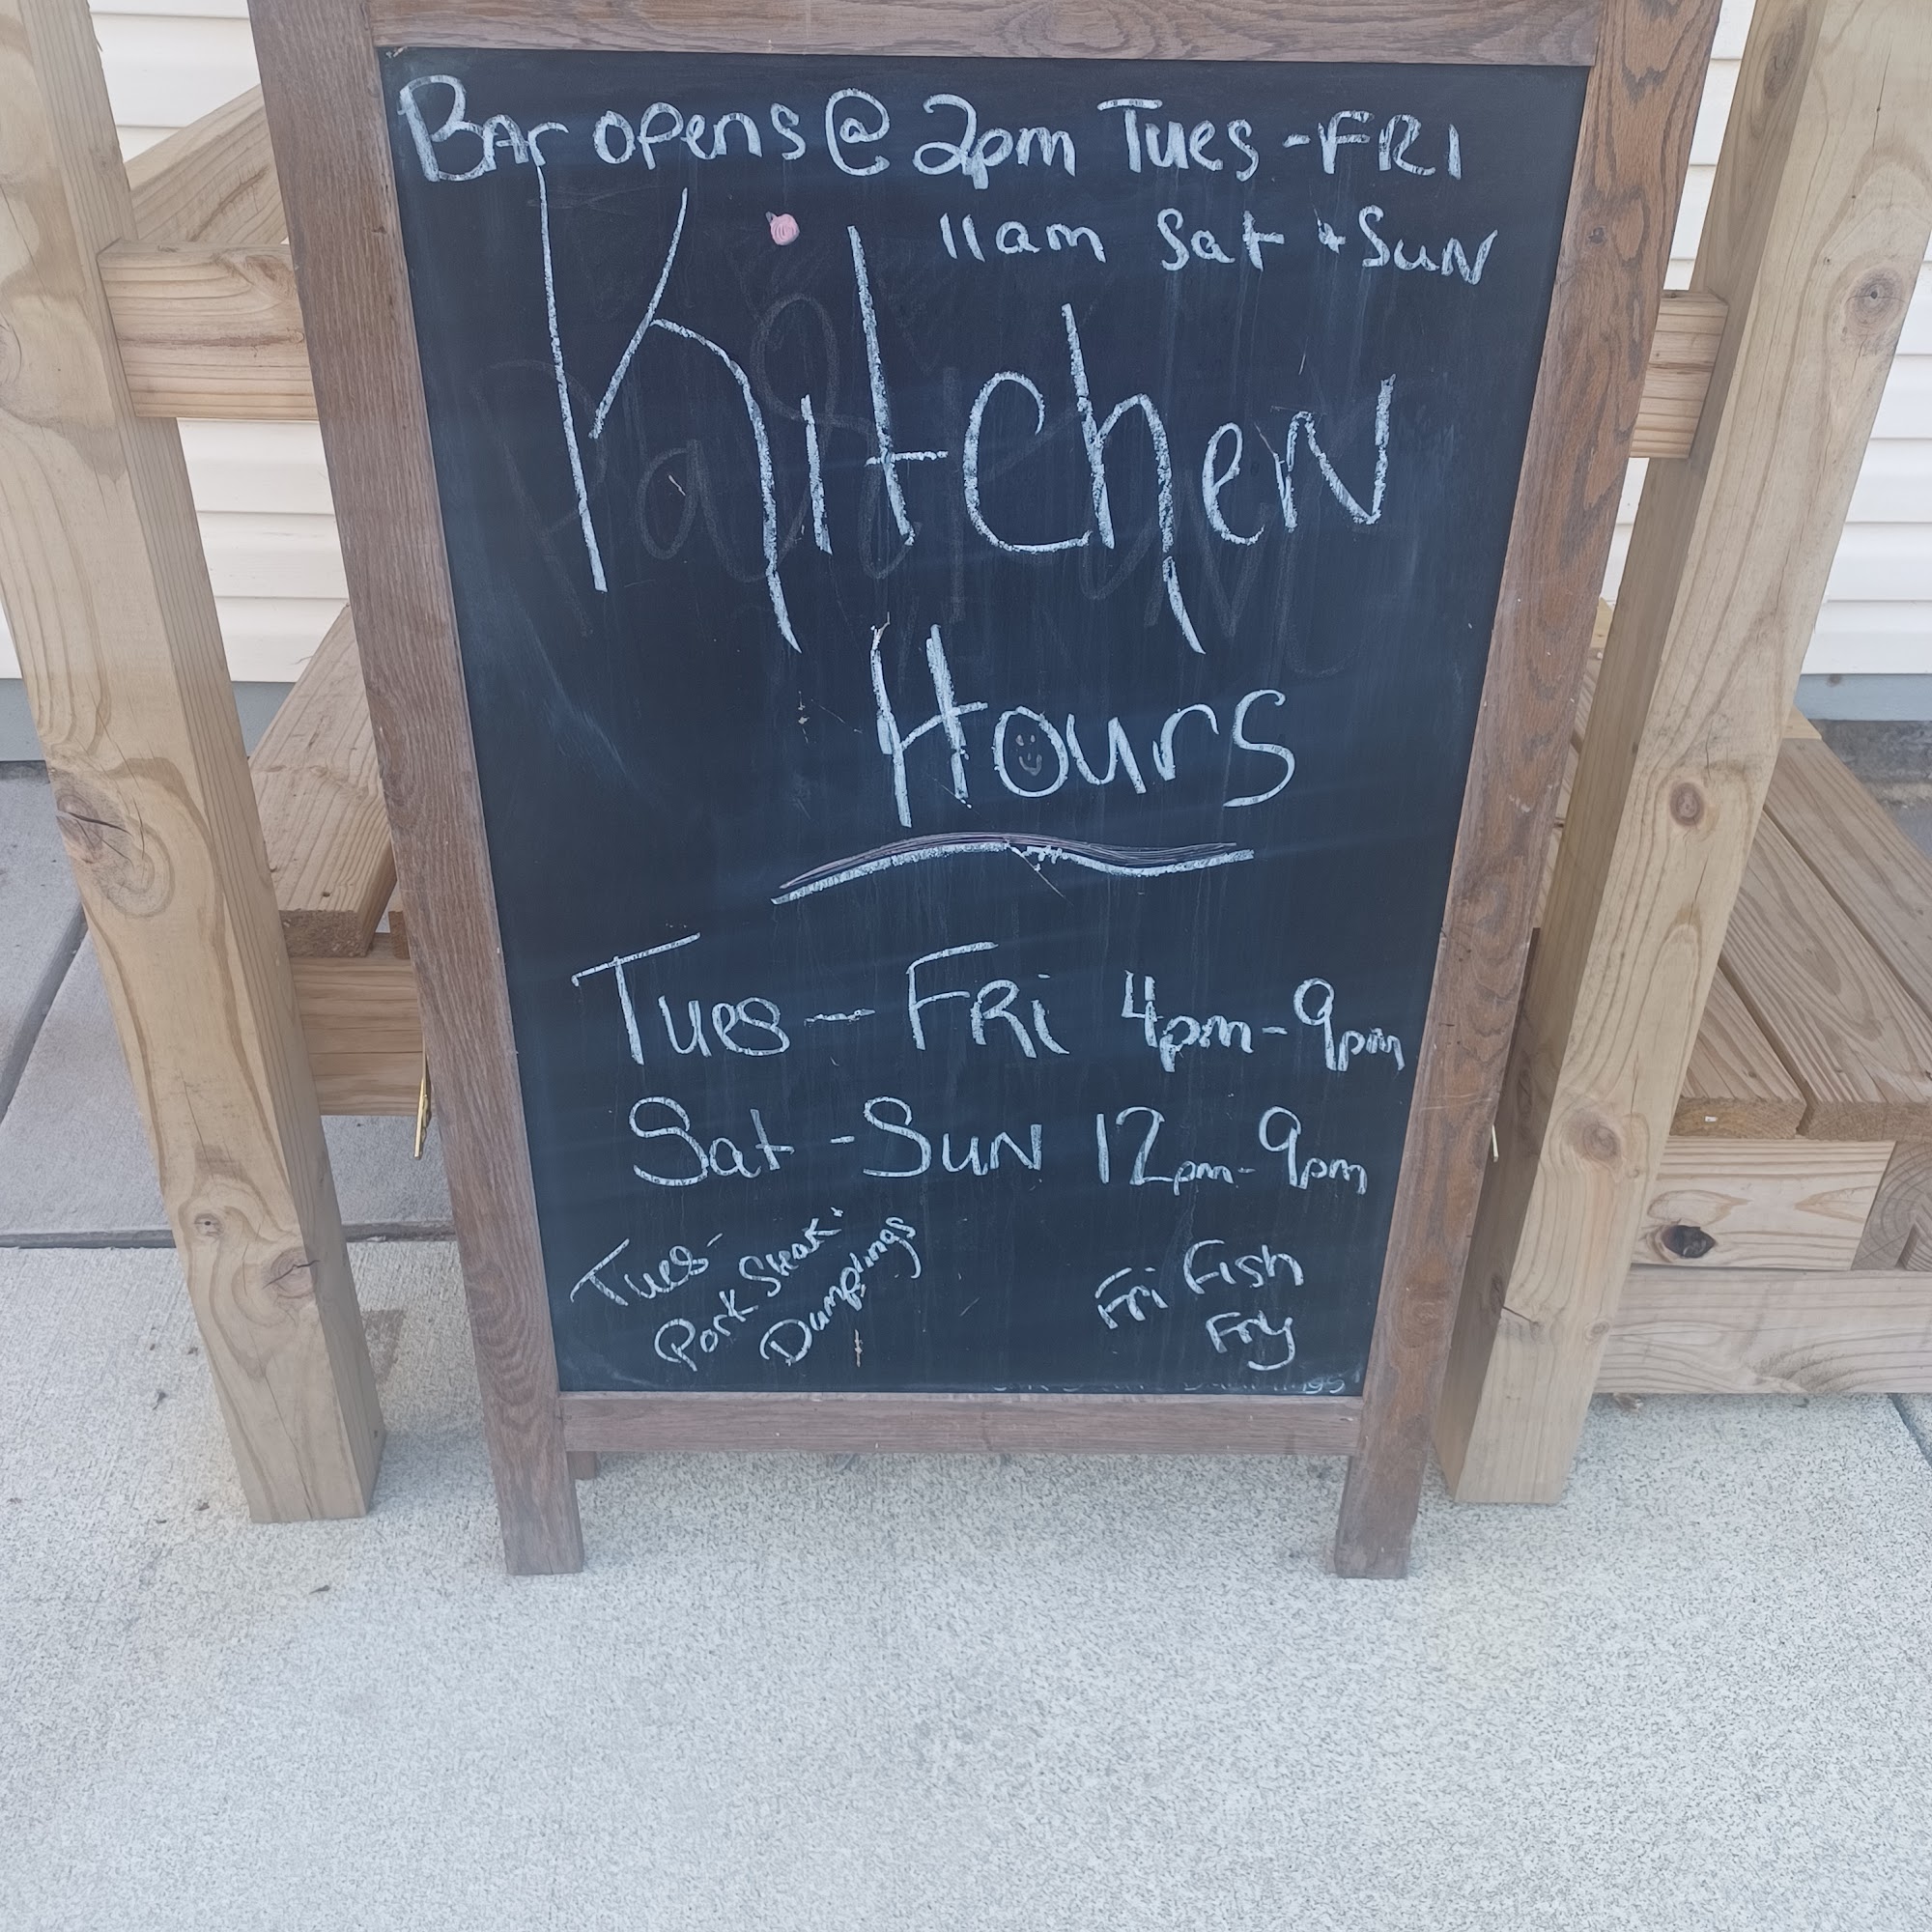 BAr opens @ 2pm Tues - FRI
11am Sat + SuN
KitcheN
Hours
Tues - FRi 4pm - 9pm
Sat - SuN 12pm - 9pm
Tues -
Pork Steak
Dumplings
Fri Fish
Fry